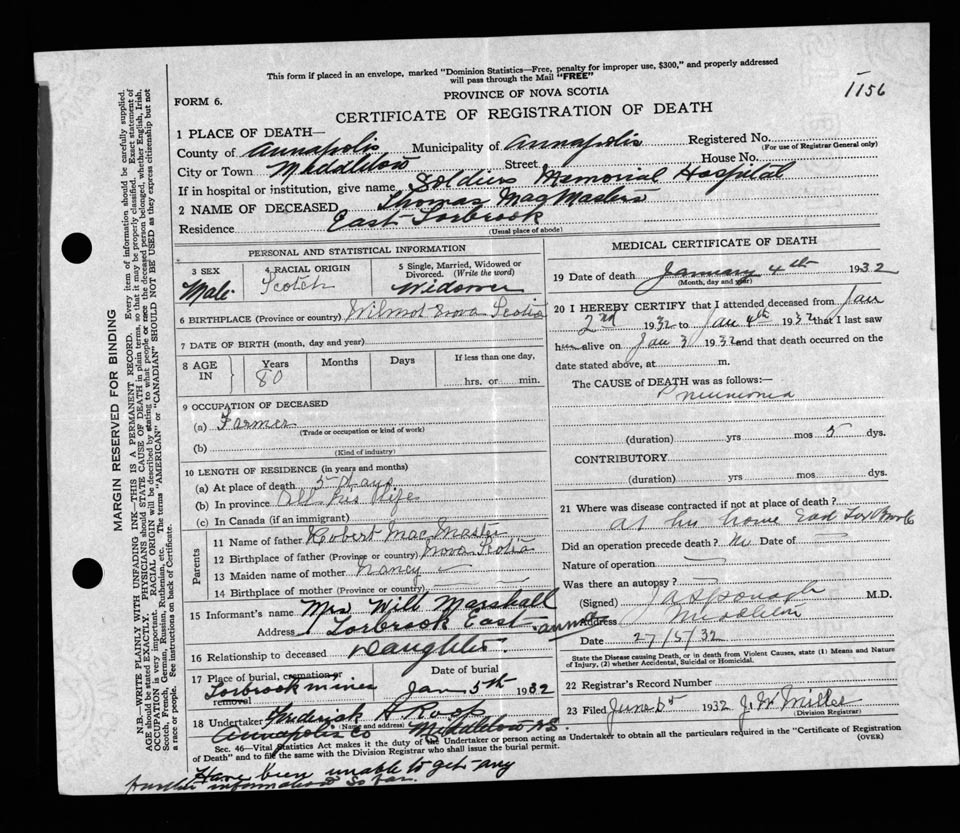 This form if placed in an envelope, marked "Dominion Statistics—Free, penalty for improper use, $300," and properly addressed
will pass through the Mail "FREE"
1156
PROVINCE OF NOVA SCOTIA
FORM 6.
CERTIFICATE OF REGISTRATION OF DEATH
1 PLACE OF DEATH—
County of Annapolis Municipality of Annapolis Registered No.
(For use of Registrar General only)
City or Town Middleton Street House No.
If in hospital or institution, give name Soldiers Memorial Hospital
2 NAME OF DECEASED Thomas MacMasters
Residence East Torbrook
(Usual place of abode)
PERSONAL AND STATISTICAL INFORMATION
3 SEX
Male
4 RACIAL ORIGIN
Scotch
5 Single, Married, Widowed or
Divorced. (Write the word)
Widower
6 BIRTHPLACE (Province or country) Wilmot Nova Scotia
7 DATE OF BIRTH (month, day and year)
8 AGE
IN
Years
80
Months
Days
If less than one day,
hrs. or min.
9 OCCUPATION OF DECEASED
(a) Farmer
(Trade or occupation or kind of work)
(b)
(Kind of industry)
10 LENGTH OF RESIDENCE (in years and months)
(a) At place of death 5 days
(b) In province All his life
(c) In Canada (if an immigrant)
Parents
11 Name of father Robert MacMaster
12 Birthplace of father (Province or country) Nova Scotia
13 Maiden name of mother Nancy —
14 Birthplace of mother (Province or country)
15 Informant's name Mrs Will Marshall
Address Torbrook East Anna
16 Relationship to deceased Daughter
17 Place of burial, cremation or
removal
Torbrook mines
Date of burial
Jan 5th 1932
18 Undertaker Frederick A Roop
(Name and address)
Annapolis Co Middleton N.S.
MEDICAL CERTIFICATE OF DEATH
19 Date of death January 4th 1932
(Month, day and year)
20 I HEREBY CERTIFY that I attended deceased from Jan
2nd 1932 to Jan 4th 1932 that I last saw
him alive on Jan 3 1932 and that death occurred on the
date stated above, at m.
The CAUSE of DEATH was as follows:—
Pneumonia
(duration) yrs mos 5 dys.
CONTRIBUTORY
(duration) yrs mos dys.
21 Where was disease contracted if not at place of death?
At his home East Torbrook
Did an operation precede death? No Date of —
Nature of operation —
Was there an autopsy? —
(Signed) M.D.
Address Middleton
Date 27/5/32
State the Disease causing Death, or in death from Violent Causes, state (1) Means and Nature
of Injury, (2) whether Accidental, Suicidal or Homicidal.
22 Registrar's Record Number
23 Filed June 1932
(Division Registrar)
Sec. 46—Vital Statistics Act makes it the duty of the Undertaker or person acting as Undertaker to obtain all the particulars required in the "Certificate of Registration
of Death" and to file the same with the Division Registrar who shall issue the burial permit.
(OVER)
Have been unable to get any
further information so far.
MARGIN RESERVED FOR BINDING
N.B.—WRITE PLAINLY WITH UNFADING INK—THIS IS A PERMANENT RECORD. Every item of information should be carefully supplied.
AGE should be stated EXACTLY. PHYSICIANS should STATE CAUSE OF DEATH in plain terms, so that it may be properly classified. Exact statement of
OCCUPATION is very important. RACIAL ORIGIN will be described by stating to what people or race the deceased person belonged, whether English, Irish,
Scotch, French, German, Russian, Ruthenian, etc. The terms "AMERICAN" or "CANADIAN" SHOULD NOT BE USED as they express citizenship but not
a race or people. See instructions on back of Certificate.